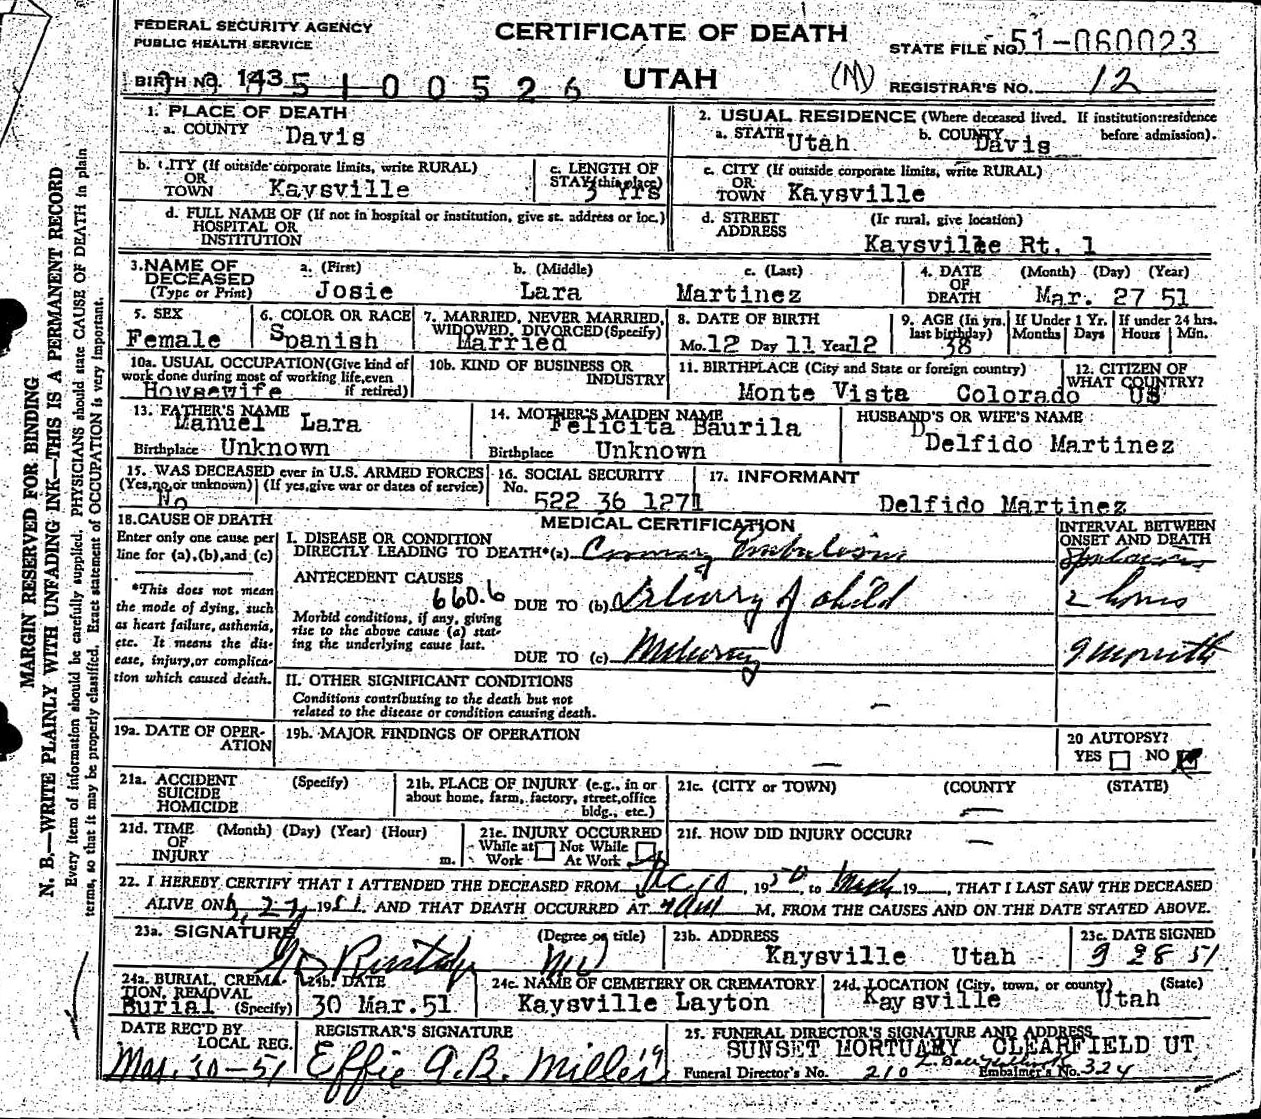 FEDERAL SECURITY AGENCY
PUBLIC HEALTH SERVICE
CERTIFICATE OF DEATH
STATE FILE NO. 51-060023
BIRTH NO. 143 5100526
UTAH
(M)
REGISTRAR'S NO. 12
1. PLACE OF DEATH
a. COUNTY Davis
2. USUAL RESIDENCE (Where deceased lived. If institution: residence before admission).
a. STATE Utah b. COUNTY Davis
b. CITY (If outside corporate limits, write RURAL)
OR
TOWN Kaysville
c. LENGTH OF STAY (this place)
3 Yrs
c. CITY (If outside corporate limits, write RURAL)
OR
TOWN Kaysville
d. FULL NAME OF (If not in hospital or institution, give st. address or loc.)
HOSPITAL OR
INSTITUTION
d. STREET ADDRESS (If rural, give location)
Kaysville Rt. 1
3. NAME OF DECEASED (Type or Print)
a. (First) Josie
b. (Middle) Lara
c. (Last) Martinez
4. DATE OF DEATH (Month) (Day) (Year)
Mar. 27 51
5. SEX
Female
6. COLOR OR RACE
Spanish
7. MARRIED, NEVER MARRIED, WIDOWED, DIVORCED (Specify)
Married
8. DATE OF BIRTH
Mo. 12 Day 11 Year 12
9. AGE (In yrs. last birthday)
38
If Under 1 Yr. Months Days
If under 24 hrs. Hours Min.
10a. USUAL OCCUPATION (Give kind of work done during most of working life, even if retired)
Howsewife
10b. KIND OF BUSINESS OR INDUSTRY
11. BIRTHPLACE (City and State or foreign country)
Monte Vista Colorado
12. CITIZEN OF WHAT COUNTRY?
US
13. FATHER'S NAME
Manuel Lara
Birthplace Unknown
14. MOTHER'S MAIDEN NAME
Felicita Baurila
Birthplace Unknown
HUSBAND'S OR WIFE'S NAME
Delfido Martinez
15. WAS DECEASED ever in U.S. ARMED FORCES
(Yes, no, or unknown) (If yes, give war or dates of service)
No
16. SOCIAL SECURITY No.
522 36 1271
17. INFORMANT
Delfido Martinez
18. CAUSE OF DEATH
Enter only one cause per line for (a), (b), and (c)
*This does not mean the mode of dying, such as heart failure, asthenia, etc. It means the disease, injury, or complication which caused death.
MEDICAL CERTIFICATION
I. DISEASE OR CONDITION
DIRECTLY LEADING TO DEATH* (a) Coronary Embolism
INTERVAL BETWEEN ONSET AND DEATH
ANTECEDENT CAUSES
660.6
DUE TO (b) Delivery of child
2 hours
Morbid conditions, if any, giving rise to the above cause (a) stating the underlying cause last.
DUE TO (c)
9 months
II. OTHER SIGNIFICANT CONDITIONS
Conditions contributing to the death but not related to the disease or condition causing death.
19a. DATE OF OPERATION
19b. MAJOR FINDINGS OF OPERATION
20 AUTOPSY?
YES NO
21a. ACCIDENT SUICIDE HOMICIDE (Specify)
21b. PLACE OF INJURY (e.g., in or about home, farm, factory, street, office bldg., etc.)
21c. (CITY or TOWN) (COUNTY (STATE)
21d. TIME OF INJURY (Month) (Day) (Year) (Hour) m.
21e. INJURY OCCURRED
While at Work Not While At Work
21f. HOW DID INJURY OCCUR?
22. I HEREBY CERTIFY THAT I ATTENDED THE DECEASED FROM Dec 10, 1950, to March 19, THAT I LAST SAW THE DECEASED
ALIVE ON 3, 27, 1951, AND THAT DEATH OCCURRED AT M, FROM THE CAUSES AND ON THE DATE STATED ABOVE.
23a. SIGNATURE (Degree or title)
MD
23b. ADDRESS
Kaysville Utah
23c. DATE SIGNED
28 51
24a. BURIAL, CREMATION, REMOVAL (Specify)
Burial
24b. DATE
30 Mar. 51
24c. NAME OF CEMETERY OR CREMATORY
Kaysville Layton
24d. LOCATION (City, town, or county) (State)
Kaysville Utah
DATE REC'D BY LOCAL REG.
Mar. 30-51
REGISTRAR'S SIGNATURE
Effie A.B. Miller
25. FUNERAL DIRECTOR'S SIGNATURE AND ADDRESS
SUNSET MORTUARY CLEARFIELD UT
Funeral Director's No. 210 Embalmer's No. 324
MARGIN RESERVED FOR BINDING
N. B.—WRITE PLAINLY WITH UNFADING INK—THIS IS A PERMANENT RECORD
Every item of information should be carefully supplied. PHYSICIANS should state CAUSE OF DEATH in plain
terms, so that it may be properly classified. Exact statement of OCCUPATION is very important.